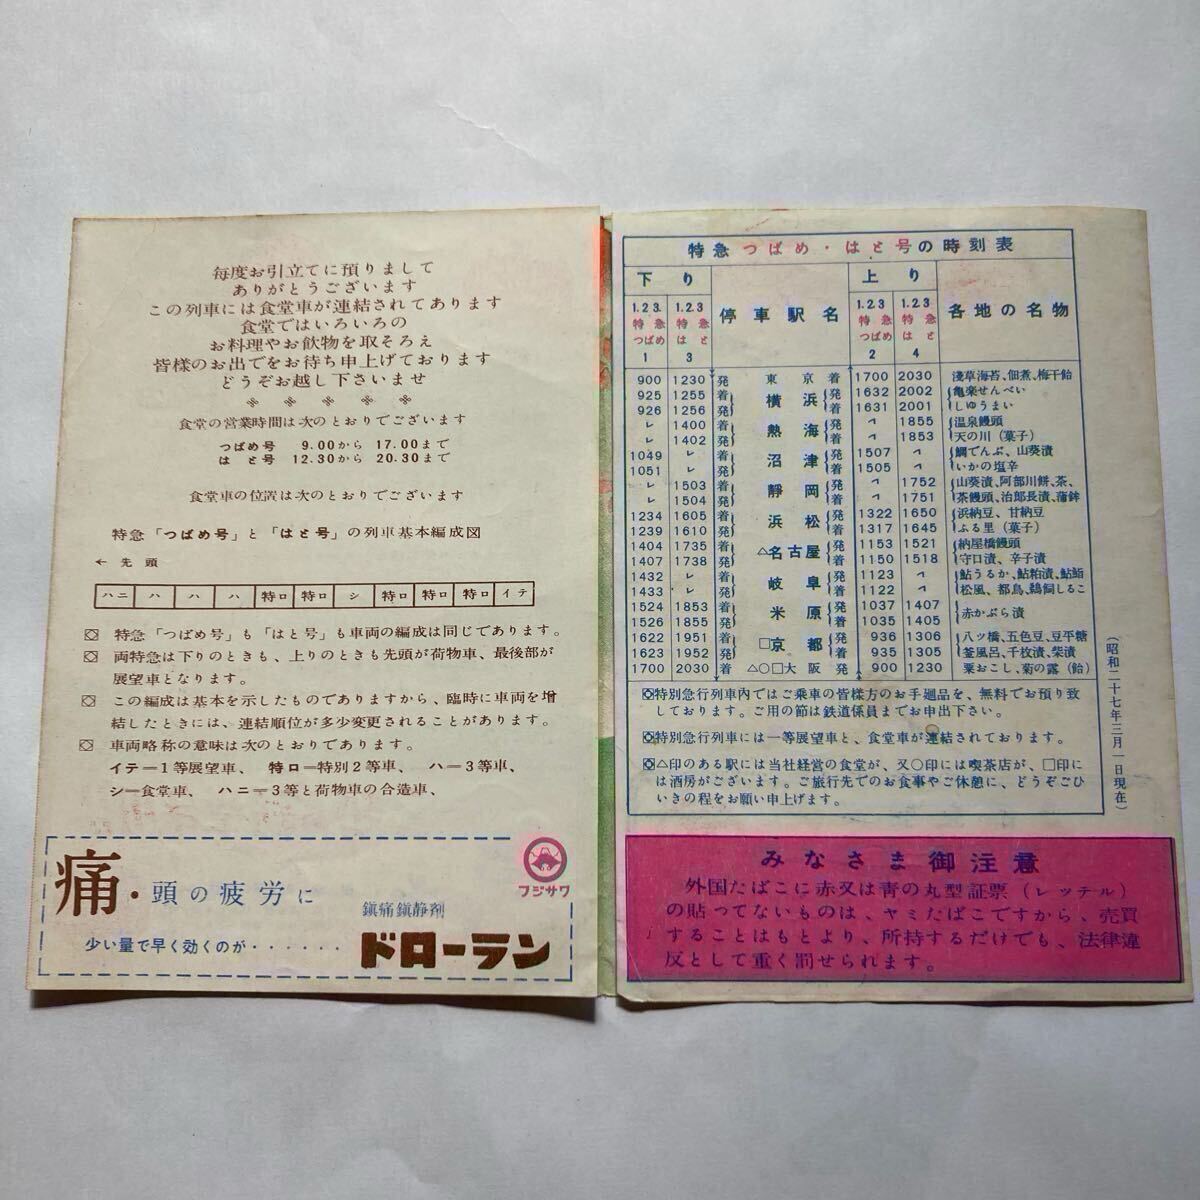 毎度お引立てに預りまして
ありがとうございます
この列車には食堂車が連結されてあります
食堂ではいろいろの
お料理やお飲物を取そろえ
皆様のお出でをお待ち申上げております
どうぞお越し下さいませ
食堂の営業時間は次のとおりでございます
つばめ号 9.00から 17.00まで
はと号 12.30から 20.30まで
食堂車の位置は次のとおりでございます
特急「つばめ号」と「はと号」の列車基本編成図
← 先頭
ハニ ハ ハ ハ 特ロ 特ロ シ 特ロ 特ロ 特ロ イテ
特急「つばめ号」も「はと号」も車両の編成は同じであります。
両特急は下りのときも、上りのときも先頭が荷物車、最後部が
展望車となります。
この編成は基本を示したものでありますから、臨時に車両を増
結したときには、連結順位が多少変更されることがあります。
車両略称の意味は次のとおりであります。
イテ=1等展望車、 特ロ=特別2等車、 ハ=3等車、
シ=食堂車、 ハニ=3等と荷物車の合造車、
痛・頭の疲労に
フジサワ
鎮痛鎮静剤
少い量で早く効くのが・・・・・・ ドローラン
特急つばめ・はと号の時刻表
下り 停車駅名 上り 各地の名物
1.2.3. 1.2.3 1.2.3 1.2.3
特急 特急 特急 特急
つばめ はと つばめ はと
1 3 2 4
900 1230 発 東京 着 1700 2030 淺草海苔、佃煮、梅干飴
925 1255 着 横浜 発 1632 2002 亀楽せんべい
926 1256 発 着 1631 2001 しゆうまい
レ 1400 着 熱海 発 1855 温泉饅頭
レ 1402 発 着 1853 天の川(菓子)
1049 レ 着 沼津 発 1507 鯛でんぶ、山葵漬
1051 レ 発 着 1505 いかの塩辛
レ 1503 着 静岡 発 1752 山葵漬、阿部川餅、茶、
レ 1504 発 着 1751 茶饅頭、治郎長漬、蒲鉾
1234 1605 着 浜松 発 1322 1650 浜納豆、甘納豆
1239 1610 発 着 1317 1645 ふる里(菓子)
1404 1735 着 △名古屋 発 1153 1521 納屋橋饅頭
1407 1738 発 着 1150 1518 守口漬、辛子漬
1432 レ 着 岐阜 発 1123 鮎うるか、鮎粕漬、鮎鮨
1433 レ 発 着 1122 松風、都鳥、鵜飼しるこ
1524 1853 着 米原 発 1037 1407 赤かぶら漬
1526 1855 発 着 1035 1405
1622 1951 着 □京都 発 936 1306 八ツ橋、五色豆、豆平糖
1623 1952 発 着 935 1305 釜風呂、千枚漬、柴漬
1700 2030 着 △○□大阪 発 900 1230 粟おこし、菊の露(飴)
特別急行列車内ではご乗車の皆様方のお手廻品を、無料でお預り致
しております。ご用の節は鉄道係員までお申出下さい。
特別急行列車には一等展望車と、食堂車が連結されております。
△印のある駅には当社経営の食堂が、又○印には喫茶店が、□印に
は酒房がございます。ご旅行先でのお食事やご休憩に、どうぞごひ
いきの程をお願い申上げます。
(昭和二十七年三月一日現在)
みなさま御注意
外国たばこに赤又は青の丸型証票(レッテル)
の貼ってないものは、ヤミたばこですから、売買
することはもとより、所持するだけでも、法律違
反として重く罰せられます。